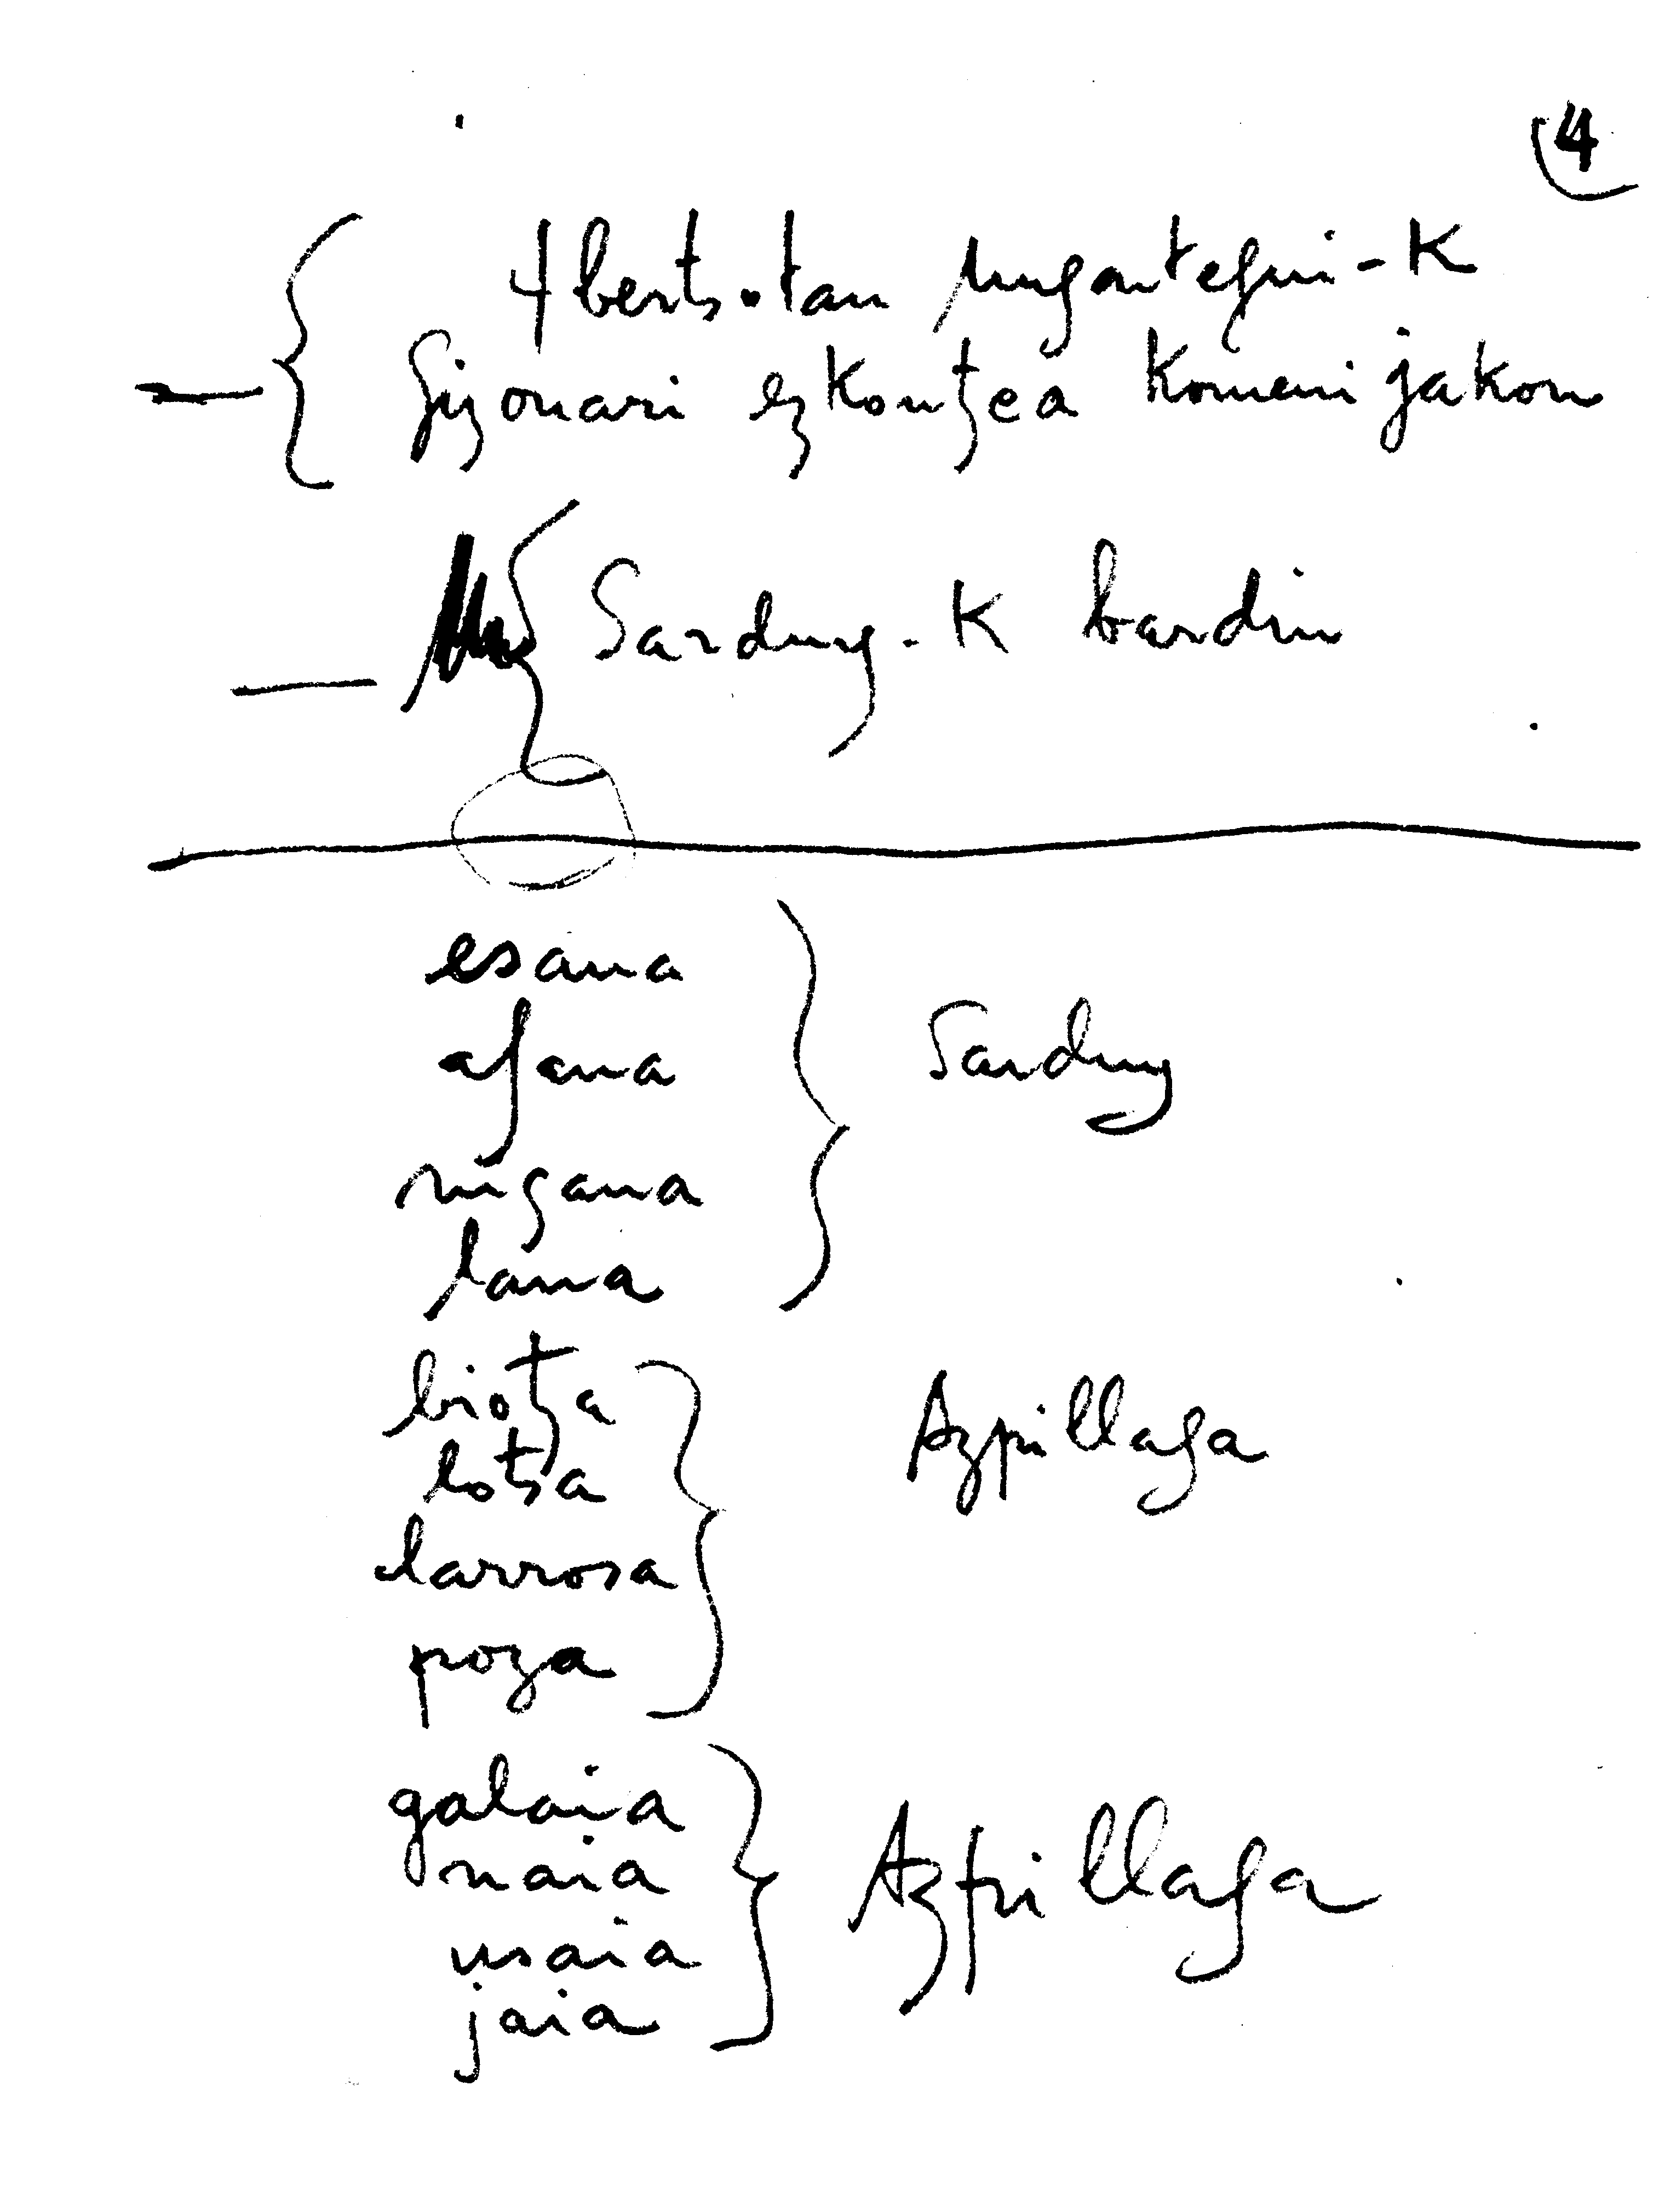 4
4 bertsotan Mugartegui-K
Gizonari ezkontzea komeni jakon
Sarduy-K bardin
esana
afana
nigana
lana
Sarduy
biotza
lotsa
larrosa
poza
Azpillaga
galaia
naia
usaia
jaia
Azpillaga